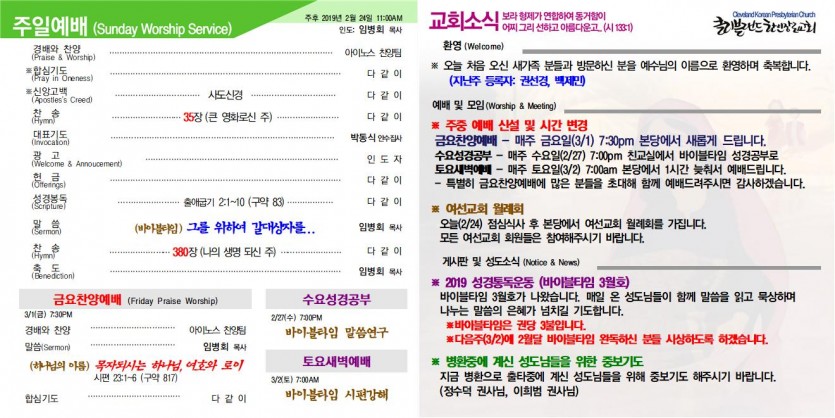 주일예배 (Sunday Worship Service)
주후 2019년 2월 24일 11:00AM
인도: 임병회 목사
경배와 찬양 아이노스 찬양팀
(Praise & Worship)
※합심기도 다 같 이
(Pray in Oneness)
※신앙고백 사도신경 다 같 이
(Apostles's Creed)
찬 송 35장 (큰 영화로신 주) 다 같 이
(Hymn)
대표기도 박동식 안수집사
(Invocation)
광 고 인 도 자
(Welcome & Annoucement)
헌 금 다 같 이
(Offerings)
성경봉독 출애굽기 2:1~10 (구약 83) 다 같 이
(Scripture)
말 씀 (바이블타임) 그를 위하여 갈대상자를... 임병회 목사
(Sermon)
찬 송 380장 (나의 생명 되신 주) 다 같 이
(Hymn)
축 도 임병회 목사
(Benediction)
금요찬양예배 (Friday Praise Worship)
3/1(금) 7:30PM
경배와 찬양 아이노스 찬양팀
말씀(Sermon) 임병회 목사
(하나님의 이름) 목자되시는 하나님, 여호와 로이
시편 23:1~6 (구약 817)
합심기도 다 같 이
수요성경공부
2/27(수) 7:00PM
바이블타임 말씀연구
토요새벽예배
3/2(토) 7:00AM
바이블타임 시편강해
교회소식 보라 형제가 연합하여 동거함이
어찌 그리 선하고 아름다운고.. (시 133:1)
Cleveland Korean Presbyterian Church
클리블랜드한인장로교회
환영 (Welcome)
※ 오늘 처음 오신 새가족 분들과 방문하신 분을 예수님의 이름으로 환영하며 축복합니다.
(지난주 등록자: 권선경, 백재민)
예배 및 모임(Worship & Meeting)
※ 주중 예배 신설 및 시간 변경
금요찬양예배 - 매주 금요일(3/1) 7:30pm 본당에서 새롭게 드립니다.
수요성경공부 - 매주 수요일(2/27) 7:00pm 친교실에서 바이블타임 성경공부로
토요새벽예배 - 매주 토요일(3/2) 7:00am 본당에서 1시간 늦춰서 예배드립니다.
- 특별히 금요찬양예배에 많은 분들을 초대해 함께 예배드려주시면 감사하겠습니다.
※ 여선교회 월례회
오늘(2/24) 점심식사 후 본당에서 여선교회 월례회를 가집니다.
모든 여선교회 회원들은 참여해주시기 바랍니다.
게시판 및 성도소식 (Notice & News)
※ 2019 성경통독운동 (바이블타임 3월호)
바이블타임 3월호가 나왔습니다. 매일 온 성도님들이 함께 말씀을 읽고 묵상하며
나누는 말씀의 은혜가 넘치길 기도합니다.
※바이블타임은 권당 3불입니다.
※다음주(3/2)에 2월달 바이블타임 완독하신 분들 시상하도록 하겠습니다.
※ 병환중에 계신 성도님들을 위한 중보기도
지금 병환으로 출타중에 계신 성도님들을 위해 중보기도 해주시기 바랍니다.
(정수덕 권사님, 이희범 권사님)